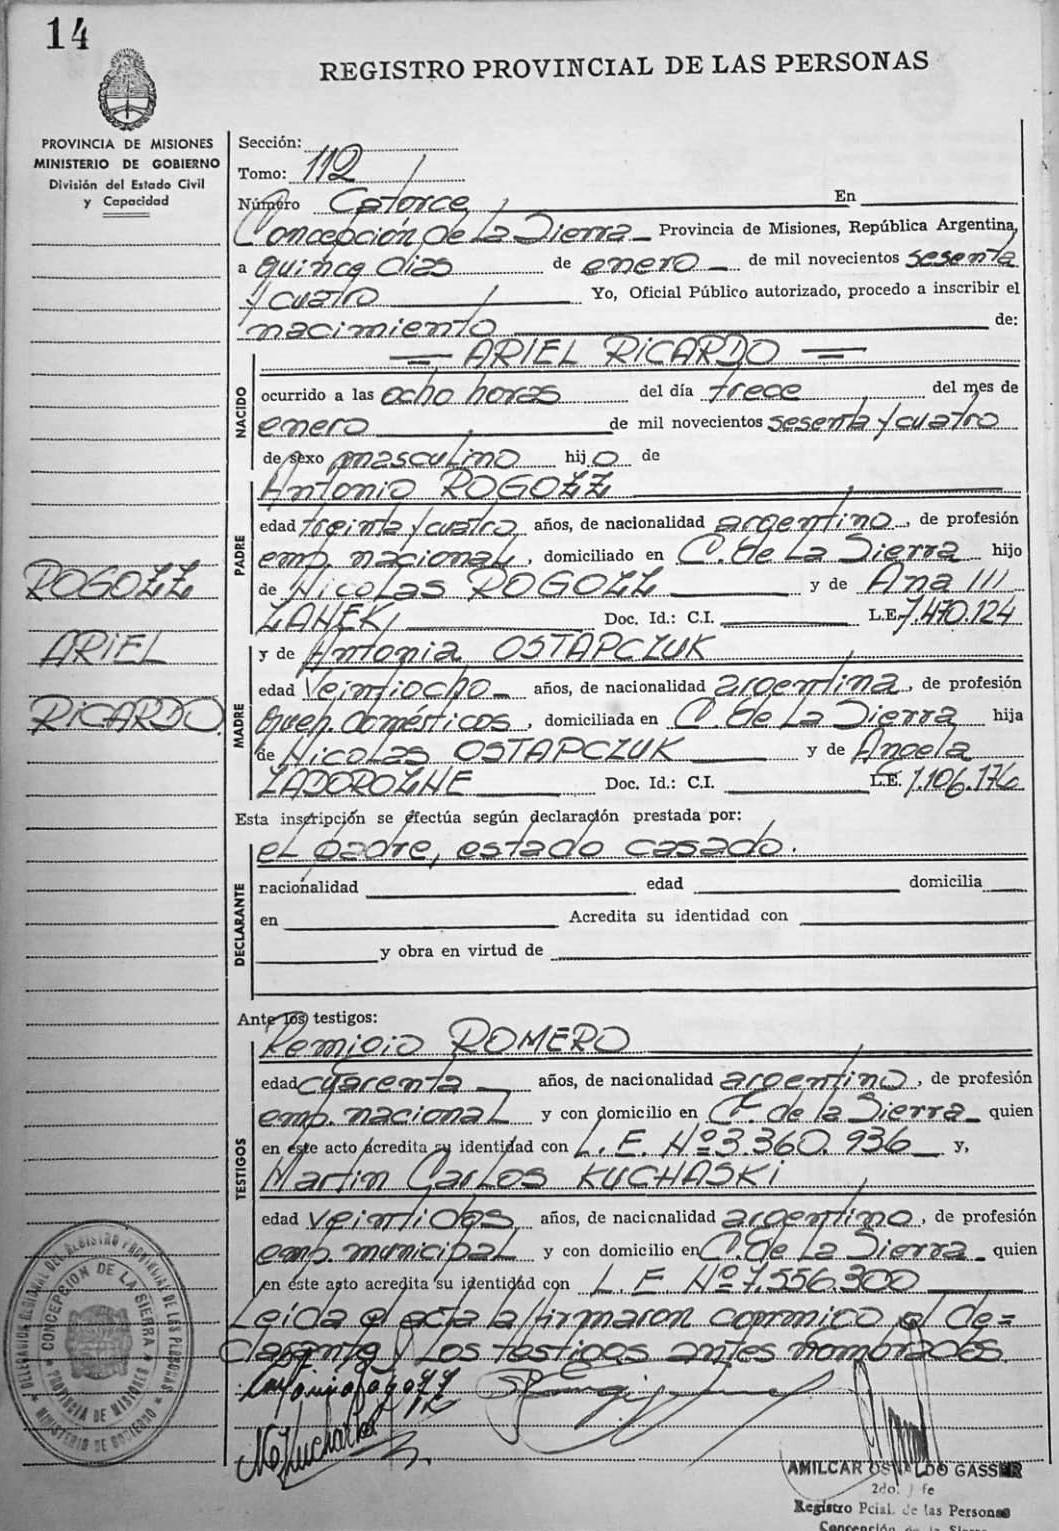 14
REGISTRO PROVINCIAL DE LAS PERSONAS
PROVINCIA DE MISIONES
MINISTERIO DE GOBIERNO
División del Estado Civil
y Capacidad
Sección:
Tomo: 112
Número Catorce En
Concepción de La Sierra Provincia de Misiones, República Argentina,
a quince dias de enero de mil novecientos sesenta
y cuatro Yo, Oficial Público autorizado, procedo a inscribir el
nacimiento de:
ARIEL RICARDO
NACIDO
ocurrido a las ocho horas del día trece del mes de
enero de mil novecientos sesenta y cuatro
de sexo masculino hijo de
Antonio ROGOZZ
PADRE
edad treinta y cuatro años, de nacionalidad argentino, de profesión
emp. nacional, domiciliado en C. de La Sierra hijo
de Nicolas ROGOZZ y de Ana
Doc. Id.: C.I. L.E. 7.470.124
ROGOZZ
ARIEL
RICARDO
y de Antonia OSTAPCZUK
MADRE
edad Veintiocho años, de nacionalidad argentina, de profesión
Queh. domésticos, domiciliada en C. de La Sierra hija
de Nicolas OSTAPCZUK y de Angela
ZADOROZHE Doc. Id.: C.I. L.E. 1.106.176
Esta inscripción se efectúa según declaración prestada por:
el padre, estado casado.
DECLARANTE
nacionalidad edad domicilia
en Acredita su identidad con
y obra en virtud de
Ante los testigos:
Remigio ROMERO
TESTIGOS
edad cuarenta años, de nacionalidad argentino, de profesión
emp. nacional y con domicilio en C. de la Sierra quien
en este acto acredita su identidad con L. E. Nº 3.360.936 y,
Martin Carlos KUCHASKI
edad veintidos años, de nacionalidad argentino, de profesión
emp. municipal y con domicilio en C. de La Sierra quien
en este acto acredita su identidad con L. E. Nº 7.556.300
Leida el acta la firmaron conmigo el de=
clarante y los testigos antes nombrados.
DELEGACION REGIONAL DEL REGISTRO PROVINCIAL DE LAS PERSONAS
CONCEPCION DE LA SIERRA
PROVINCIA DE MISIONES
MINISTERIO DE GOBIERNO
AMILCAR OSVALDO GASSER
2do. Jefe
Registro Pcial. de las Personas
Concepción de la Sierra